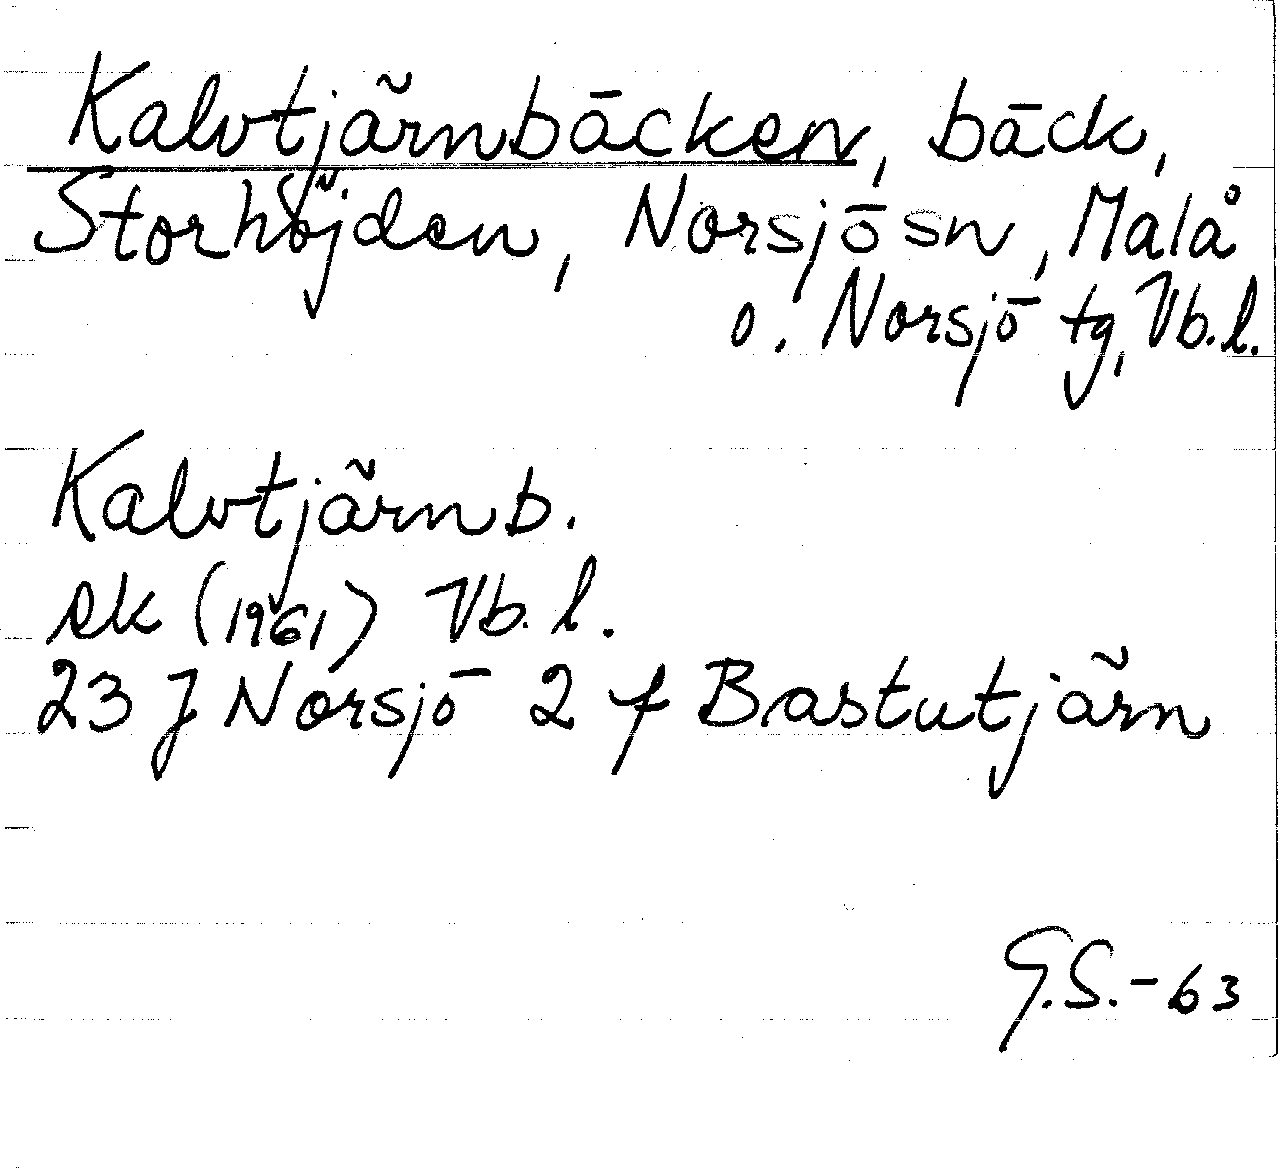 Kalvtjärnbäcken, bäck,
Storhöjden, Norsjö sn, Malå
o. Norsjö tg, Vb.l.
Kalvtjärnb.
ek (1961) Vb.l.
23 J Norsjö 2 f Bastutjärn
G.S.-63